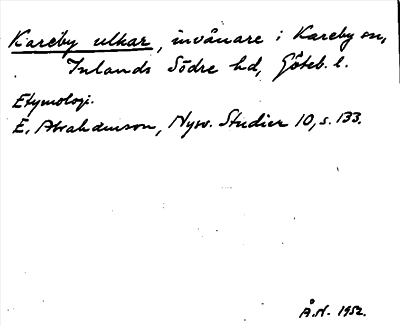 Kareby ulkar, invånare i Kareby sn,
Inlands Södre hd, Göteb. l.
Etymologi.
E. Abrahamson, Nysv. Studier 10, s. 133.
Å.H. 1952.